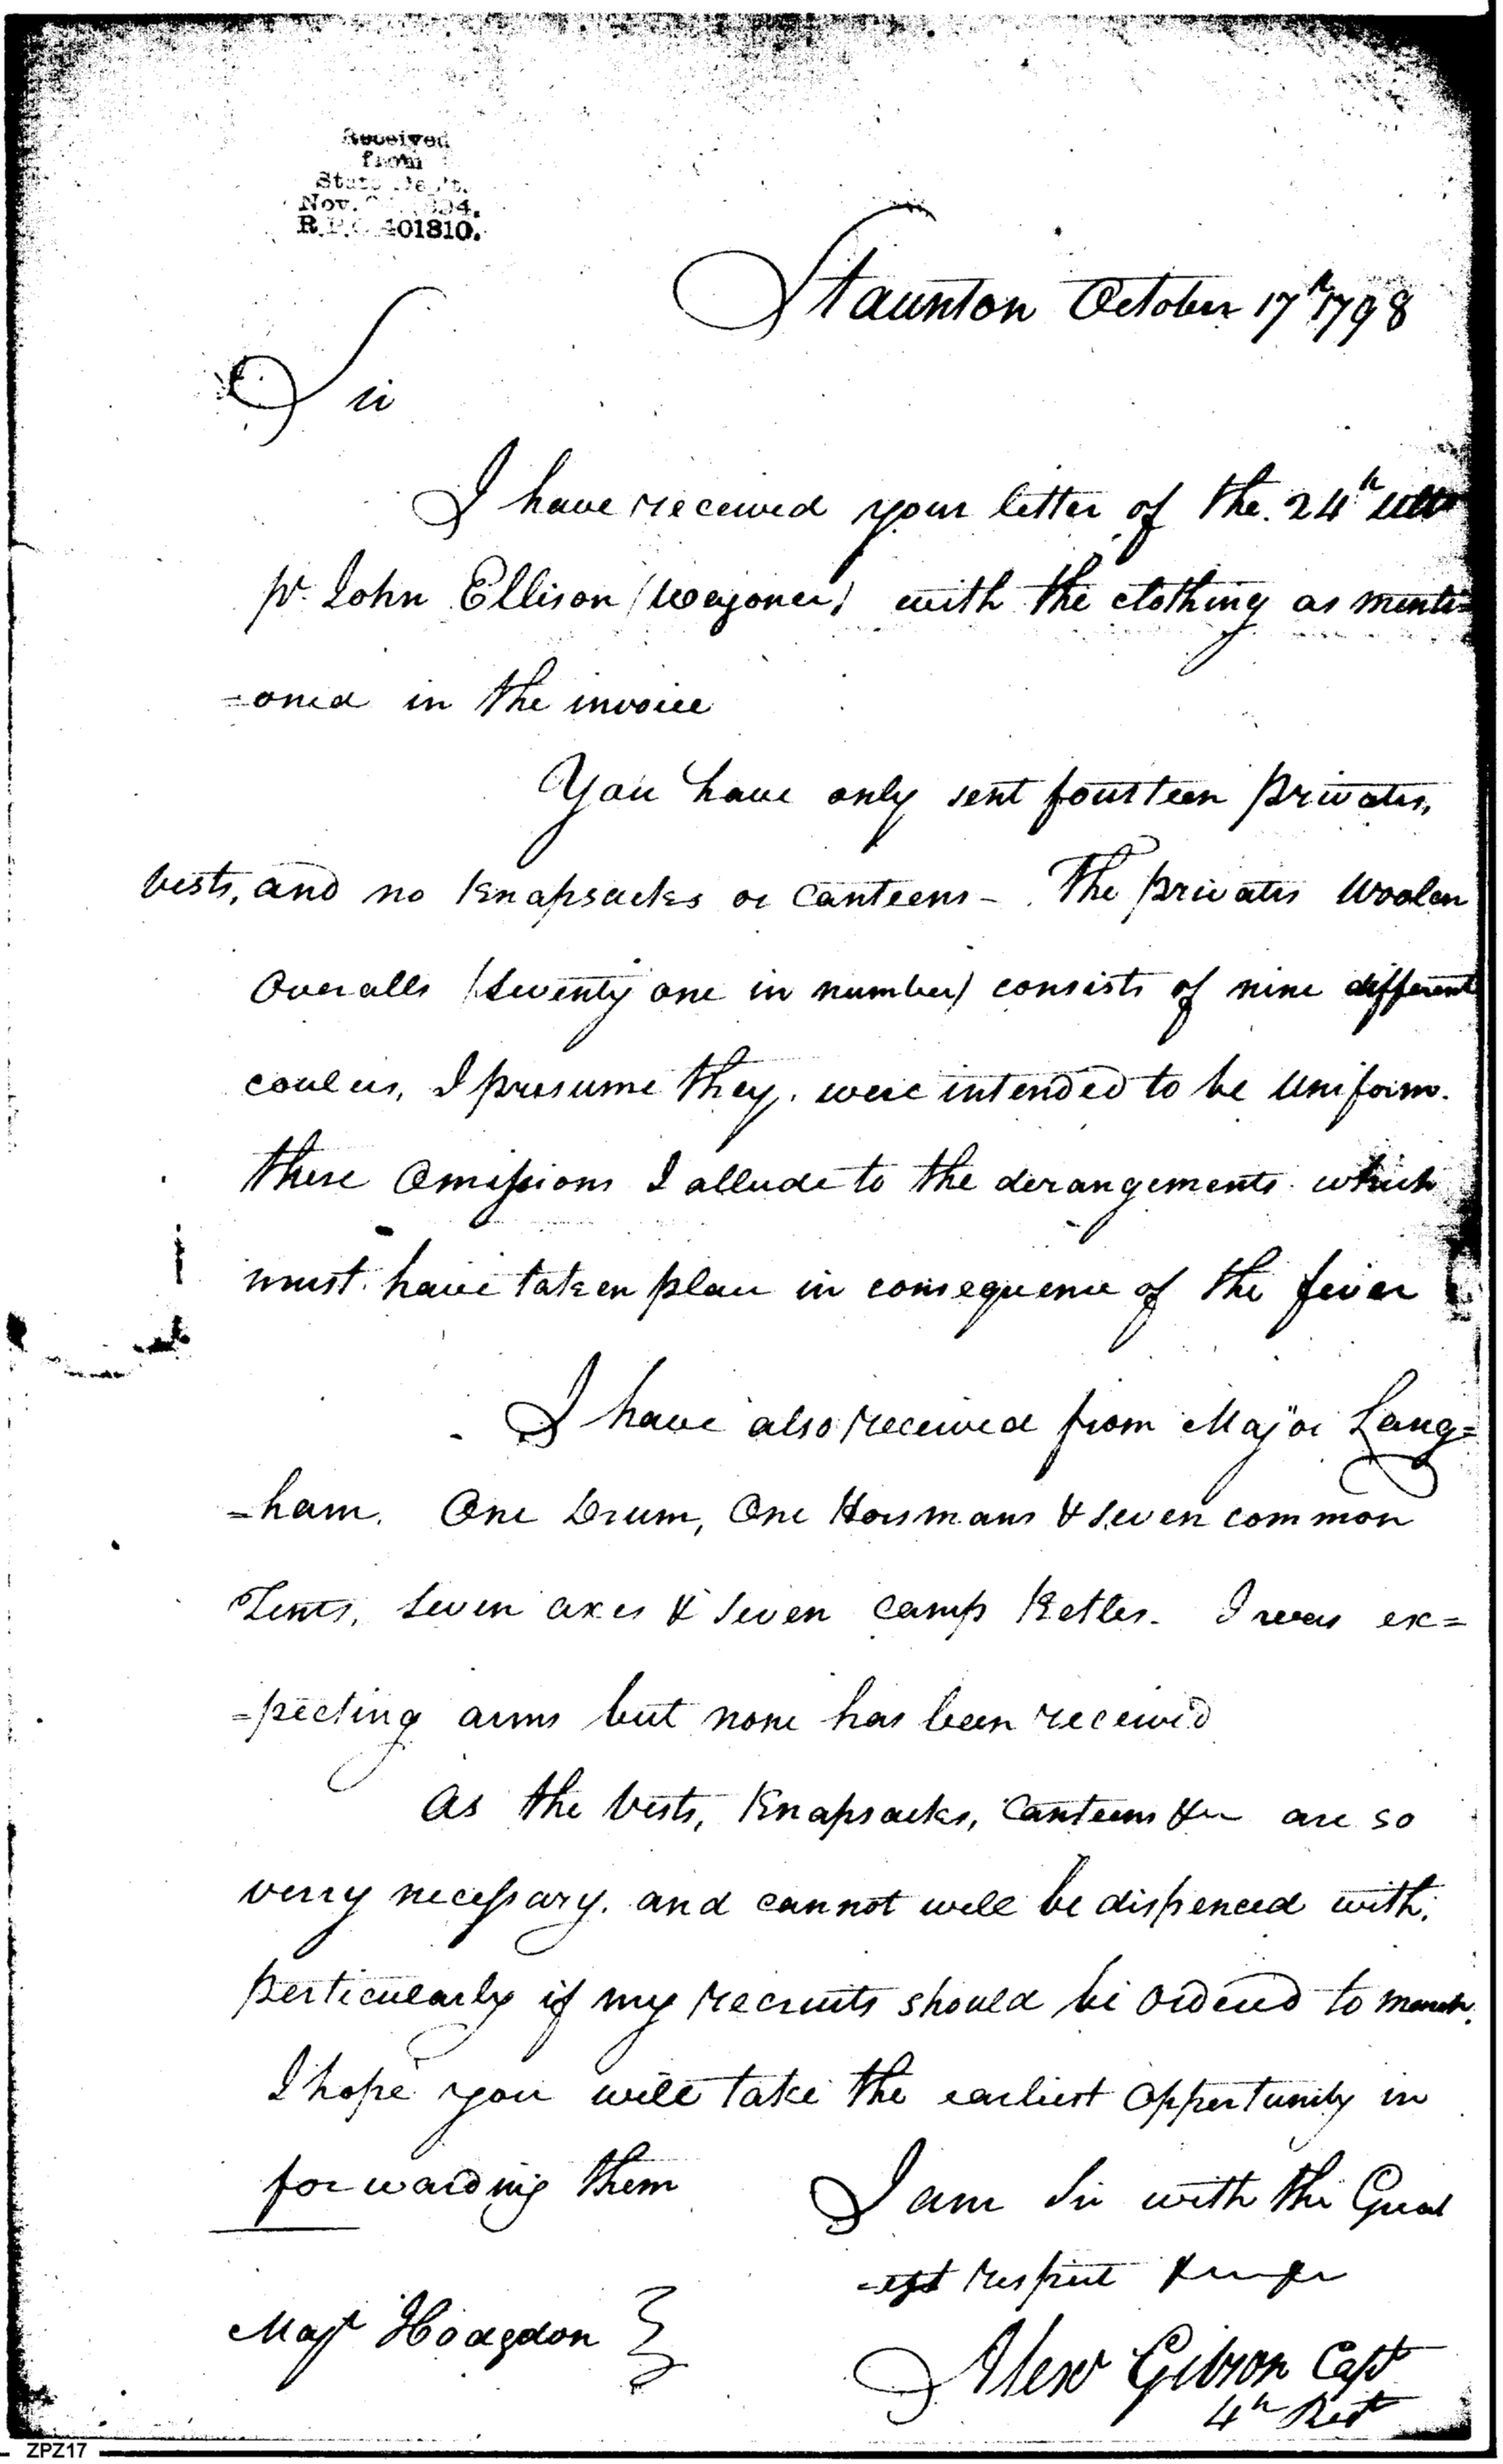 Received
from
State Dep't.
Nov.
R.P. 401810.
Staunton October 17th 1798
Sir
I have received your letter of the 24th ulto
pr. John Ellison (Wagoner) with the clothing as menti=
=oned in the invoice
You have only sent fourteen privates,
vests, and no Knapsacks or Canteens - The privates Woolen
Overalls (Seventy one in number) consists of nine different
coulers, I presume they were intended to be Uniform.
these Omissions I allude to the derangements which
must have taken place in consequence of the fever
I have also received from Major Lang=
=ham. One Drum, One Horsmans & seven common
Tents, Seven axes & Seven Camp Ketles. I was ex=
=pecting arms but none has been received
As the Vests, Knapsacks, Canteens &c are so
verry necessary. and cannot well be dispenced with,
perticularly if my recruits should be ordered to march.
I hope you will take the earliest oppertunity in
forwarding them
I am Sir with the Great
=est respect
Majr Hodgdon
Alexr Gibson Capt
4th Regt
ZPZ17